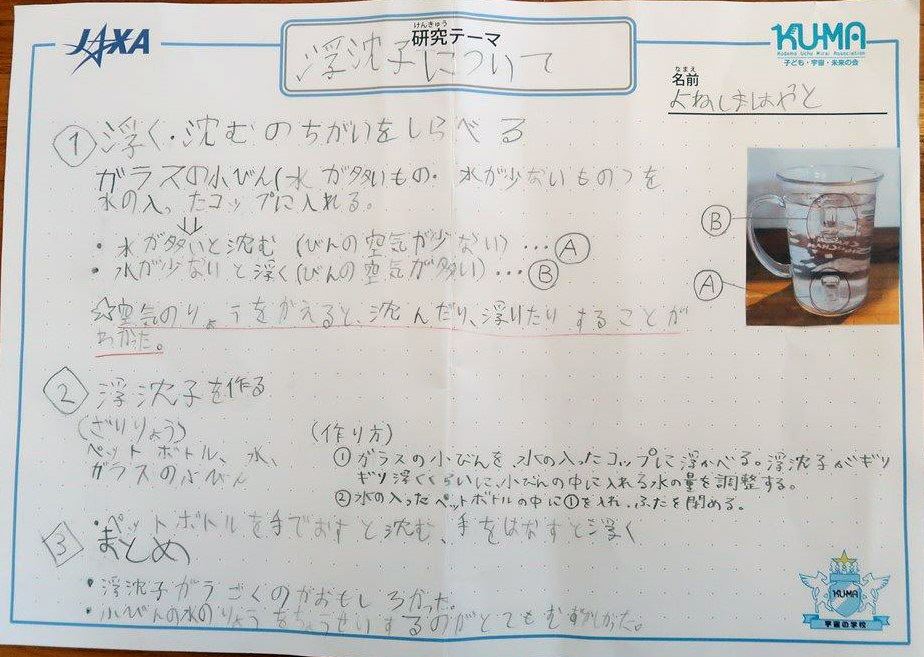 JAXA
けんきゅう
研究テーマ
浮沈子について
KUMA
Kodomo Uchu Mirai Association
子ども・宇宙・未来の会
なまえ
名前
よねしまはやと
① 浮く・沈むのちがいをしらべる
ガラスの小びん(水が多いもの・水が少ないものつを
水の入ったコップに入れる。
⇓
・水が多いと沈む(びんの空気が少ない)…Ⓐ
・水が少ないと浮く(びんの空気が多い)…Ⓑ
☆空気のりょうをかえると、沈んだり、浮いたりすることが
わかった。
Ⓑ
Ⓐ
② 浮沈子を作る
(ざいりょう)
ペットボトル、水、
ガラスの小びん
(作り方)
①ガラスの小びんを、水の入ったコップに浮かべる。浮沈子がギリ
ギリ浮くくらいに、小びんの中に入れる水の量を調整する。
②水の入ったペットボトルの中に①を入れ、ふたを閉める。
・ペットボトルを手でおすと沈む、手をはなすと浮く
③ まとめ
・浮沈子がうごくのがおもしろかった。
・小びんの水のりょうをちょうせいするのがとてもむずかしかった。
KUMA
宇宙の学校